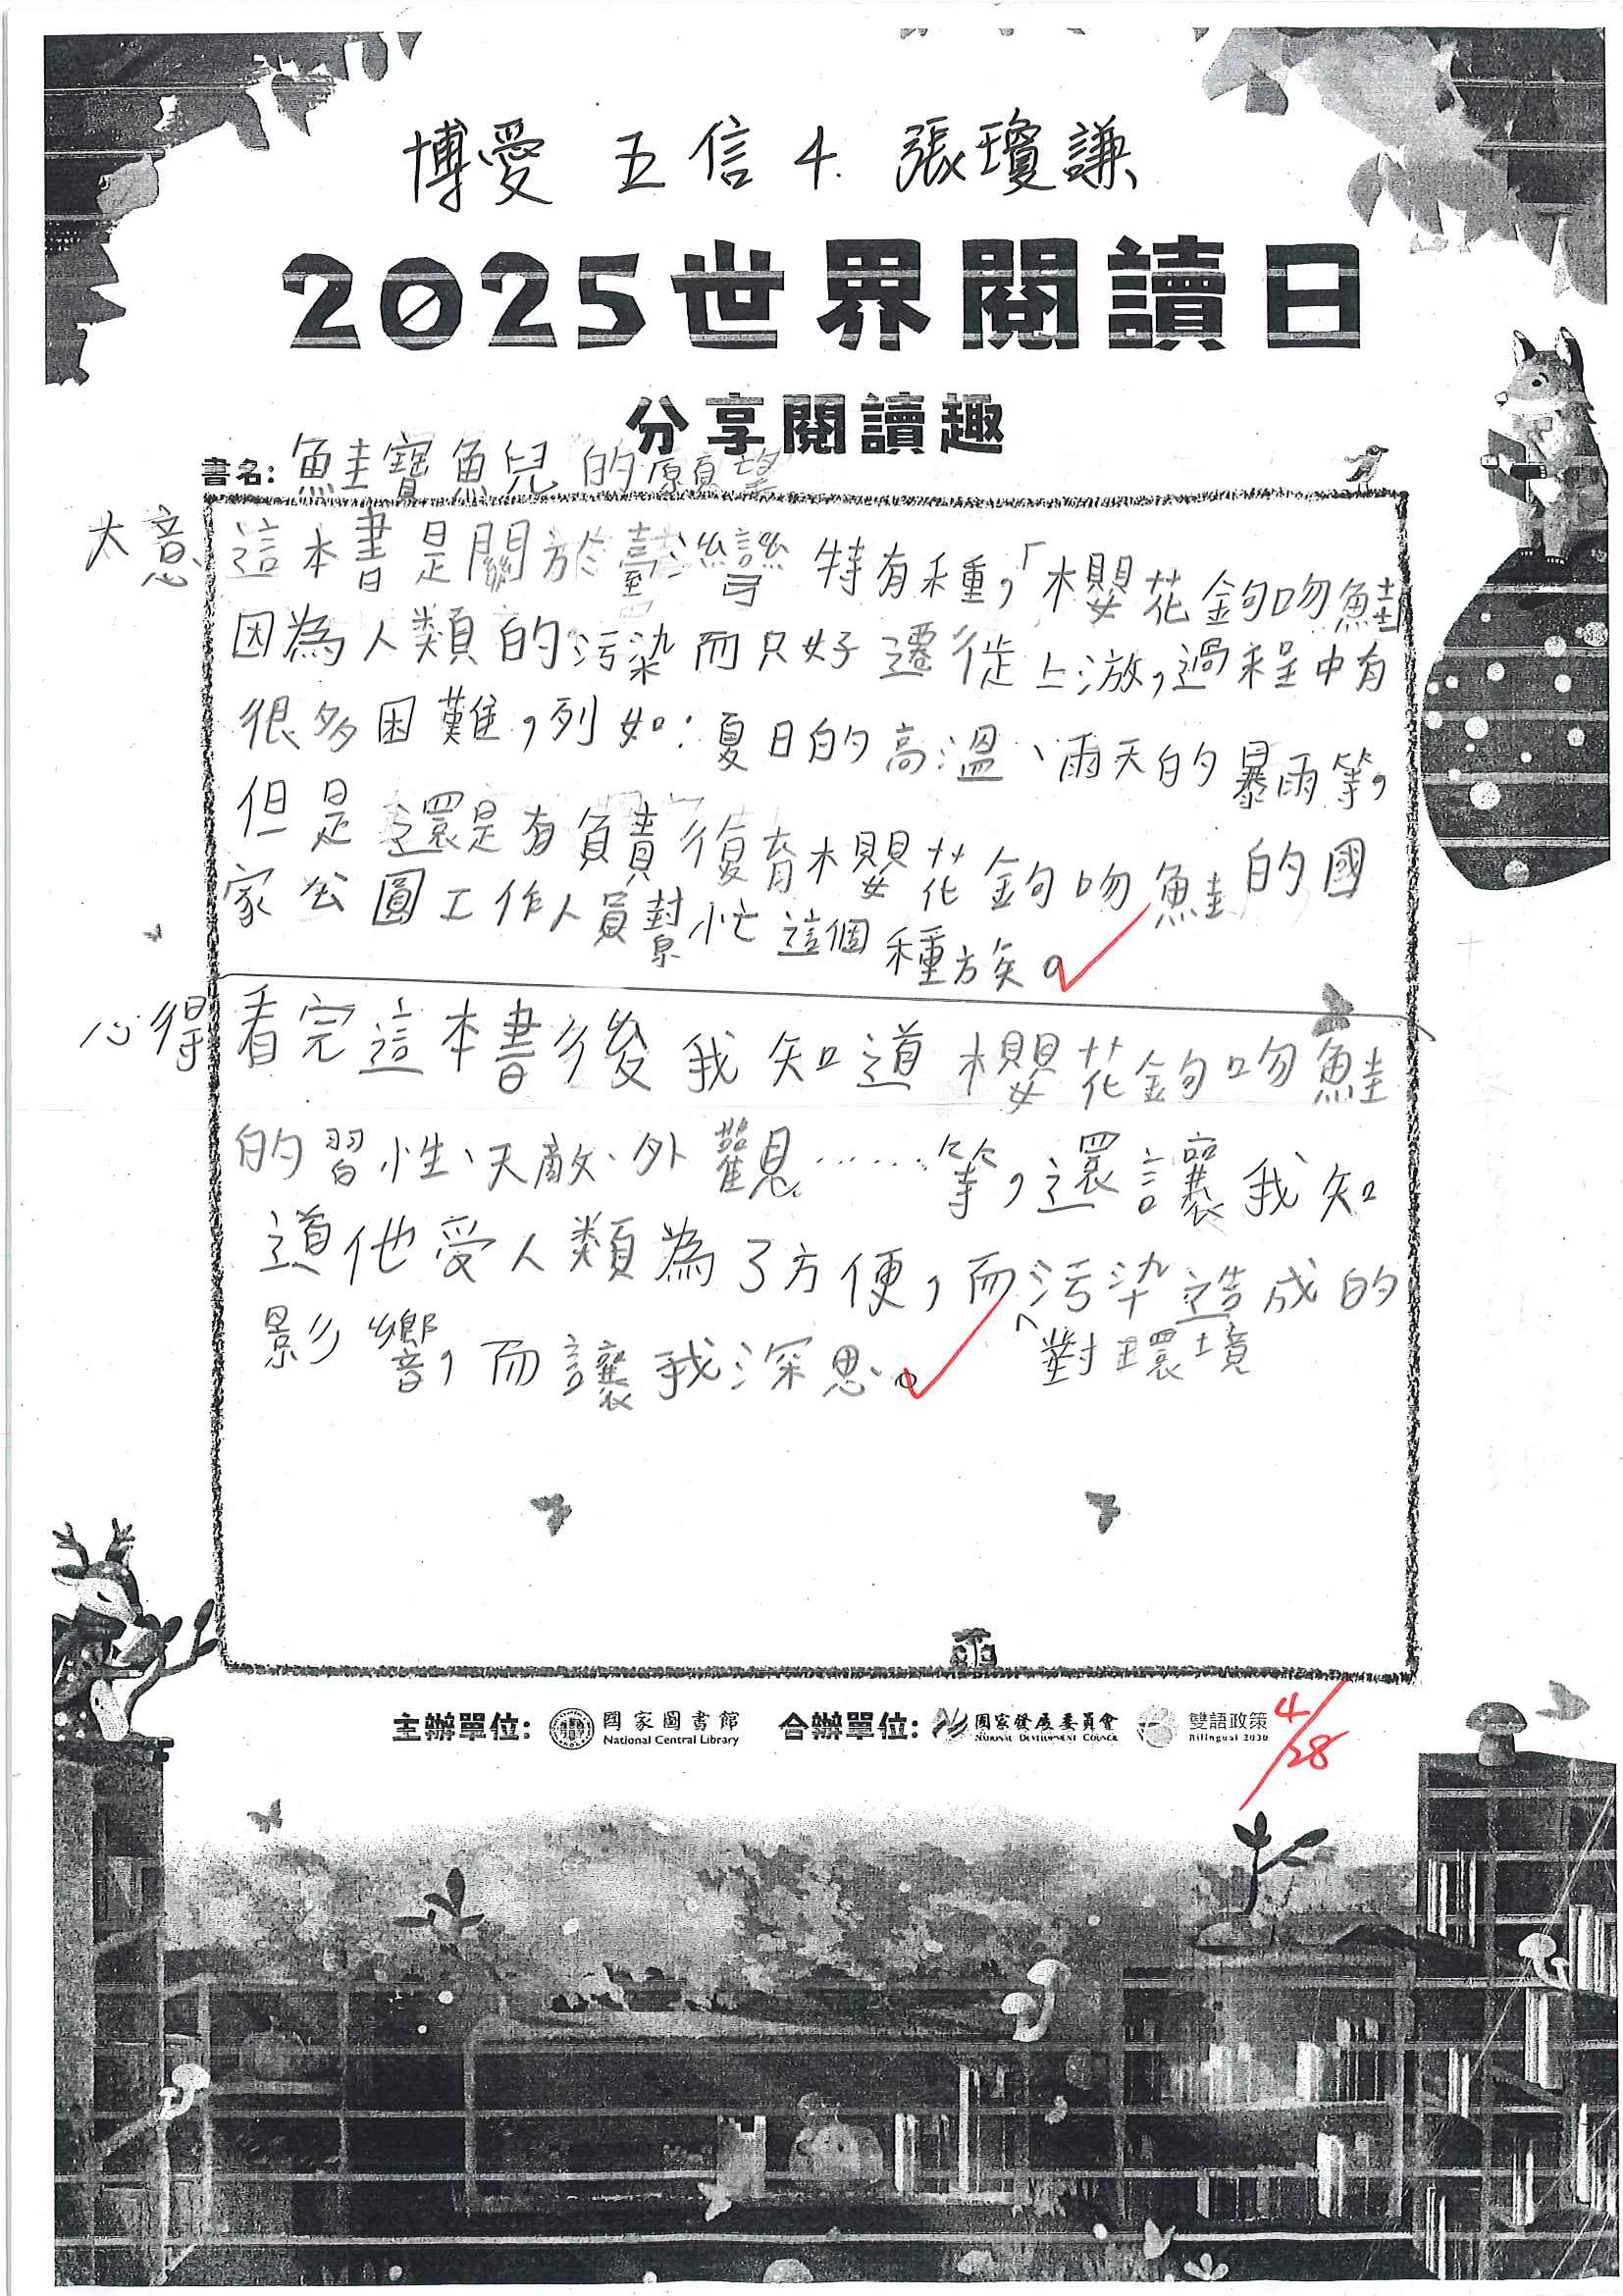 博愛 五信 4. 張瓊謙
2025世界閱讀日
分享閱讀趣
書名: 鮭寶魚兒的願望
大意
這本書是關於臺灣特有種,「櫻花鉤吻鮭
因為人類的污染而只好遷徙上游,過程中有
很多困難,列如:夏日的高溫、雨天的暴雨等,
但是還是有負責復育櫻花鉤吻鮭的國
家公園工作人員幫忙這個種族。
心得
看完這本書後我知道櫻花鉤吻鮭
的習性、天敵、外觀……等,還讓我知
道他受人類為了方便,而污染造成的
對環境
影響,而讓我深思。
主辦單位: 國家圖書館 National Central Library 合辦單位: 國家發展委員會 National Development Council 雙語政策 Bilingual 2030
4/28